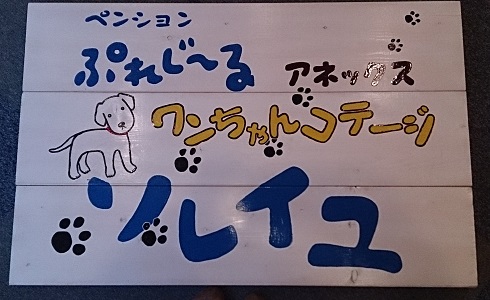 ペンション
ぷれじ〜る アネックス
ワンちゃんコテージ
ソレイユ